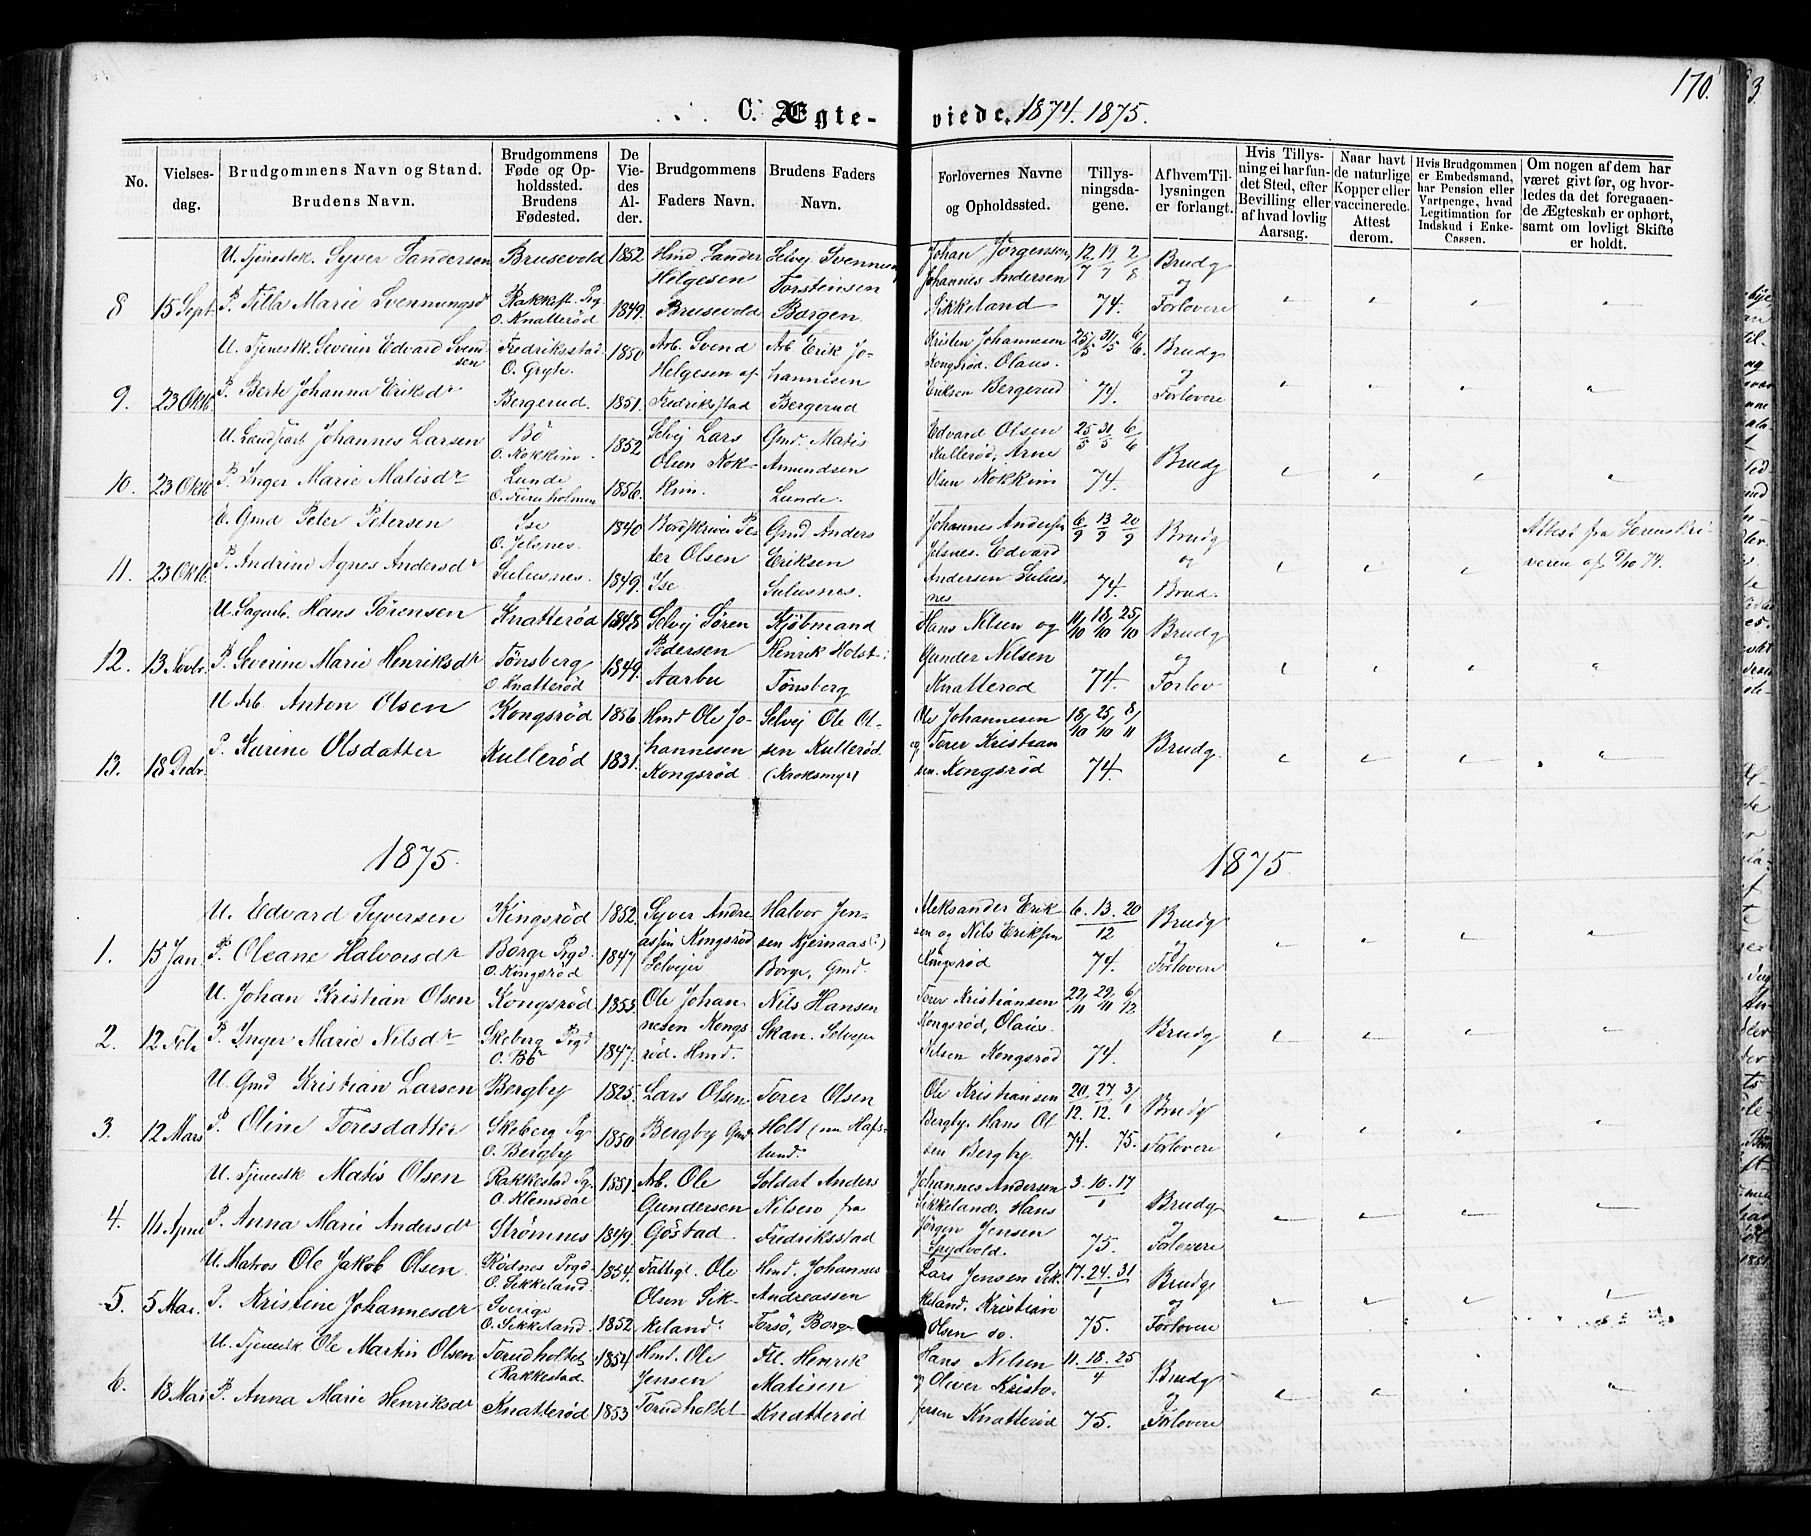 170.
3.
C. Ægte-viede. 1874. 1875.
No.
Vielses-dag.
Brudgommens Navn og Stand.
Brudens Navn.
Brudgommens Føde og Opholdssted. Brudens Fødested.
De Viedes Alder.
Brudgommens Faders Navn.
Brudens Faders Navn.
Forlovernes Navne og Opholdssted.
Tillysningsdagene.
Af hvem Tillysningen er forlangt.
Hvis Tillysning ei har fundet Sted, efter Bevilling eller af hvad lovlig Aarsag.
Naar havt de naturlige Kopper eller vaccinerede. Attest derom.
Hvis Brudgommen er Embedsmand, har Pension eller Vartpenge, hvad Legitimation for Indskud i Enke-Cassen.
Om nogen af dem har været givt før, og hvorledes da det foregaaende Ægteskab er ophørt, samt om lovligt Skifte er holdt.
8 15 Sept.
U. Tjenestek. Syver Sandersen Brusevold 1852 Hmd Sander Helgesen Brusevold
P. Tilla Marie Svenningsdr Rakkest. Prg. O. Knatterød 1849. Selvej Svenning Torstensen Borgen
Johan Jørgensen, Johannes Andersen Sikkeland 12/7 19/7 2/8 74. Brudg og Forlovere
9. 23 Okt.
U. Tjenestk. Severin Edvard Svendsen Fredriksstad O. Gryte. 1850 Arb. Svend Helgesen af Fredriksstad
P. Berte Johanna Eriksdr Bergerud. 1851. Arb. Erik Johannesen Bergerud
Kristen Johannesen Kongsrød. Olaus Eriksen Bergerud 25/5 31/5 6/6. 74. Brudg og Forlovere
10. 23 Okt.
U. Landharb Johannes Larsen Bö O. Kokkim 1852 Selvej Lars Olsen Kokkim.
P. Inger Marie Matisdr Lunde O. Furuholmen 1856. Gmd. Matis Amundsen Lunde.
Edvard Olsen Kullerød, Arne Olsen Kokkim 25/5 31/5 6/6 74. Brudg
11. 23 Okt.
U. Gmd Peter Petersen Ise O. Jelsnes. 1840 Peter Olsen Ise
P. Andrine Agnes Andersdr Sulusnes. 1849. Gmd Anders Eriksen Sulusnes.
Johannes Andersen Jelsnes. Edvard Andersen Sulusnes 6/9 13/9 20/9 74. Brudg og Brud.
Attest fra Sorenskriveren af 9/10 74.
12. 13 Novbr.
U. Sagarb. Hans Sørensen Knatterød 1848 Selvej Søren Pedersen Aarbu
P. Severine Marie Henriksdr Tönsberg O Knatterød 1849. Kjøbmand Henrik Holst Tønsberg
Hans Nilsen og Gunder Nilsen Knatterød 11/10 18/10 25/10 74. Brudg og Forlov
13. 18 Decbr.
U Arb. Anton Olsen Kongsrød 1856 Hmd Ole Johannesen Kongsrød
P. Karine Olsdatter Kullerød 1831. Selvej Ole Olsen Kullerød (Kroksmyr)
Ole Johannesen og Torer Kristiansen. Kongsrød 18/10 25/10 8/11 74. Brudg.
1875.
1875.
1. 15 Jan.
U. Edvard Syversen Kingsrød 1852. Syver Andreassen Kingsrød Selvejer
P. Oleane Halvorsdr Borge Prgd. O. Kingsrød 1847 Halvor Jensen Kjernaas(?) Borge, Gmd.
Aleksander Eriksen og Nils Eriksen Kingsrød 6. 13. 20/12 74. Brudg og Forlovere
2. 12 Feb.
U. Johan Kristian Olsen Kongsrød 1853. Ole Johannesen Kongsrød. Hmd.
P. Inger Marie Nilsdr Skeberg Prgd O. Bö 1847. Nils Hansen Skan. Selvejer
Torer Kristiansen Kongsrød, Olaus Nilsen Kongsrød 22/11 29/11 6/12 74. Brudg
3. 12 Mars
U. Gmd Kristian Larsen Bergby 1825. Lars Olsen Bergby Gmd
P. Oline Toresdatter Skeberg Pg O. Bergby 1850 Torer Olsen Holt (nu Hafslund)
Ole Kristiansen Bergby. Hans Olsen Bergby. 20/12. 27/12. 3/1 74 75. Brudg Forlovere
4. 16 April
U. Tjenestk Matis Olsen Rakkestad Pg. O. Klemsdae 1851. Arb. Ole Gundersen Göstad.
P. Anna Marie Andersdr Strömnes 1849. Soldat Anders Nilsen fra Fredriksstad
Johannes Andersen Sikkeland. Hans Jørgen Jensen Spydvold. 3. 10. 17/1 75. Brudg og Forlovere
5. 5 Mai.
U. Matros Ole Jakob Olsen. Rødnes Prgd. O. Sikkeland. 1854. Fattigl. Ole Olsen Sikkeland
P. Kristine Johannesdr Sverige O. Sikkeland. 1852. Hmd. Johannes Andreassen Torsö, Borge
Lars Jensen Sikkeland. Kristian Olsen do. 17. 24. 31/1 75. Brudg og Forlovere
6. 18 Mai
U. Tjenestk Ole Martin Olsen Torudholtet (Rakkestad 1854 Hmd. Ole Jensen Torudholtet
P. Anna Marie Henriksdr Knatterød 1853 Henrik Matisen Knatterød
Hans Nilsen og Oliver Kristofersen Knatterød 11. 18. 25/4 75. Brudg og Forlovere